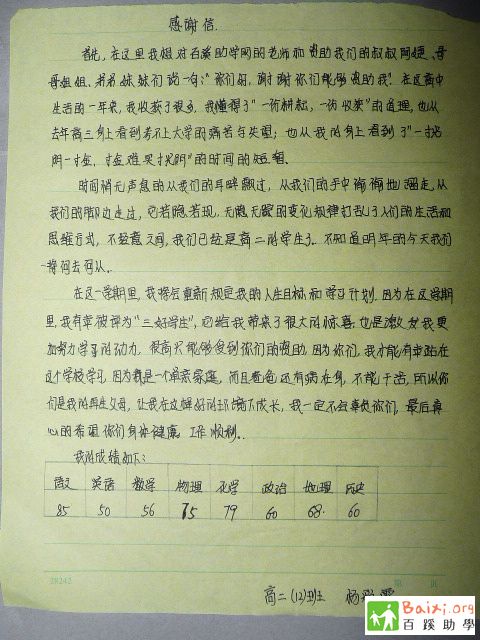 感谢信
首先,在这里我想对百溪助学网的老师和资助我们的叔叔阿姨、哥
哥姐姐、弟弟妹妹们说一句:"你们好,谢谢你们能够资助我".在这高中
生活的一年来,我收获了很多,我懂得了"一份耕耘,一份收获"的道理,也从
去年高三身上看到考不上大学的痛苦与失望;也从我的身上看到了"一寸光
阴一寸金,寸金难买寸光阴"的时间的短暂.
时间悄无声息的从我们的耳畔飘过,从我们的手中偷偷地溜走,从
我们的脚边走过,它若隐若现,无隐无踪的变化规律打乱了人们的生活和
思维方式,不经意之间,我们已经是高二的学生了.不知道明年的今天我们
将何去何从.
在这一学期里,我将会重新规定我的人生目标和学习计划.因为在这学期
里,我有幸被评为"三好学生",它给我带来了很大的惊喜.也是激发我更
加努力学习的动力.很高兴能够受到你们的资助,因为你们,我才能有幸站在
这个学校学习,因为我是一个单亲家庭,而且爸爸还有病在身,不能干活,所以你
们是我的再生父母,让我在这样好的环境下成长,我一定不会辜负你们,最后真
心的希望你们身体健康 工作顺利.
我的成绩如下:
语文 英语 数学 物理 化学 政治 地理 历史
85 50 56 75 79 60 68. 60
28242 第 页
高二(12)班 杨
Baixi.org
百蹊助學